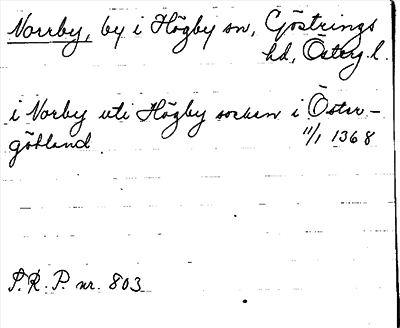 Norrby, by i Högby sn, Göstrings
hd, Österg. l.
i Norby uti Högby socken i Öster-
götland 11/1 1368
S. R. P. nr. 803